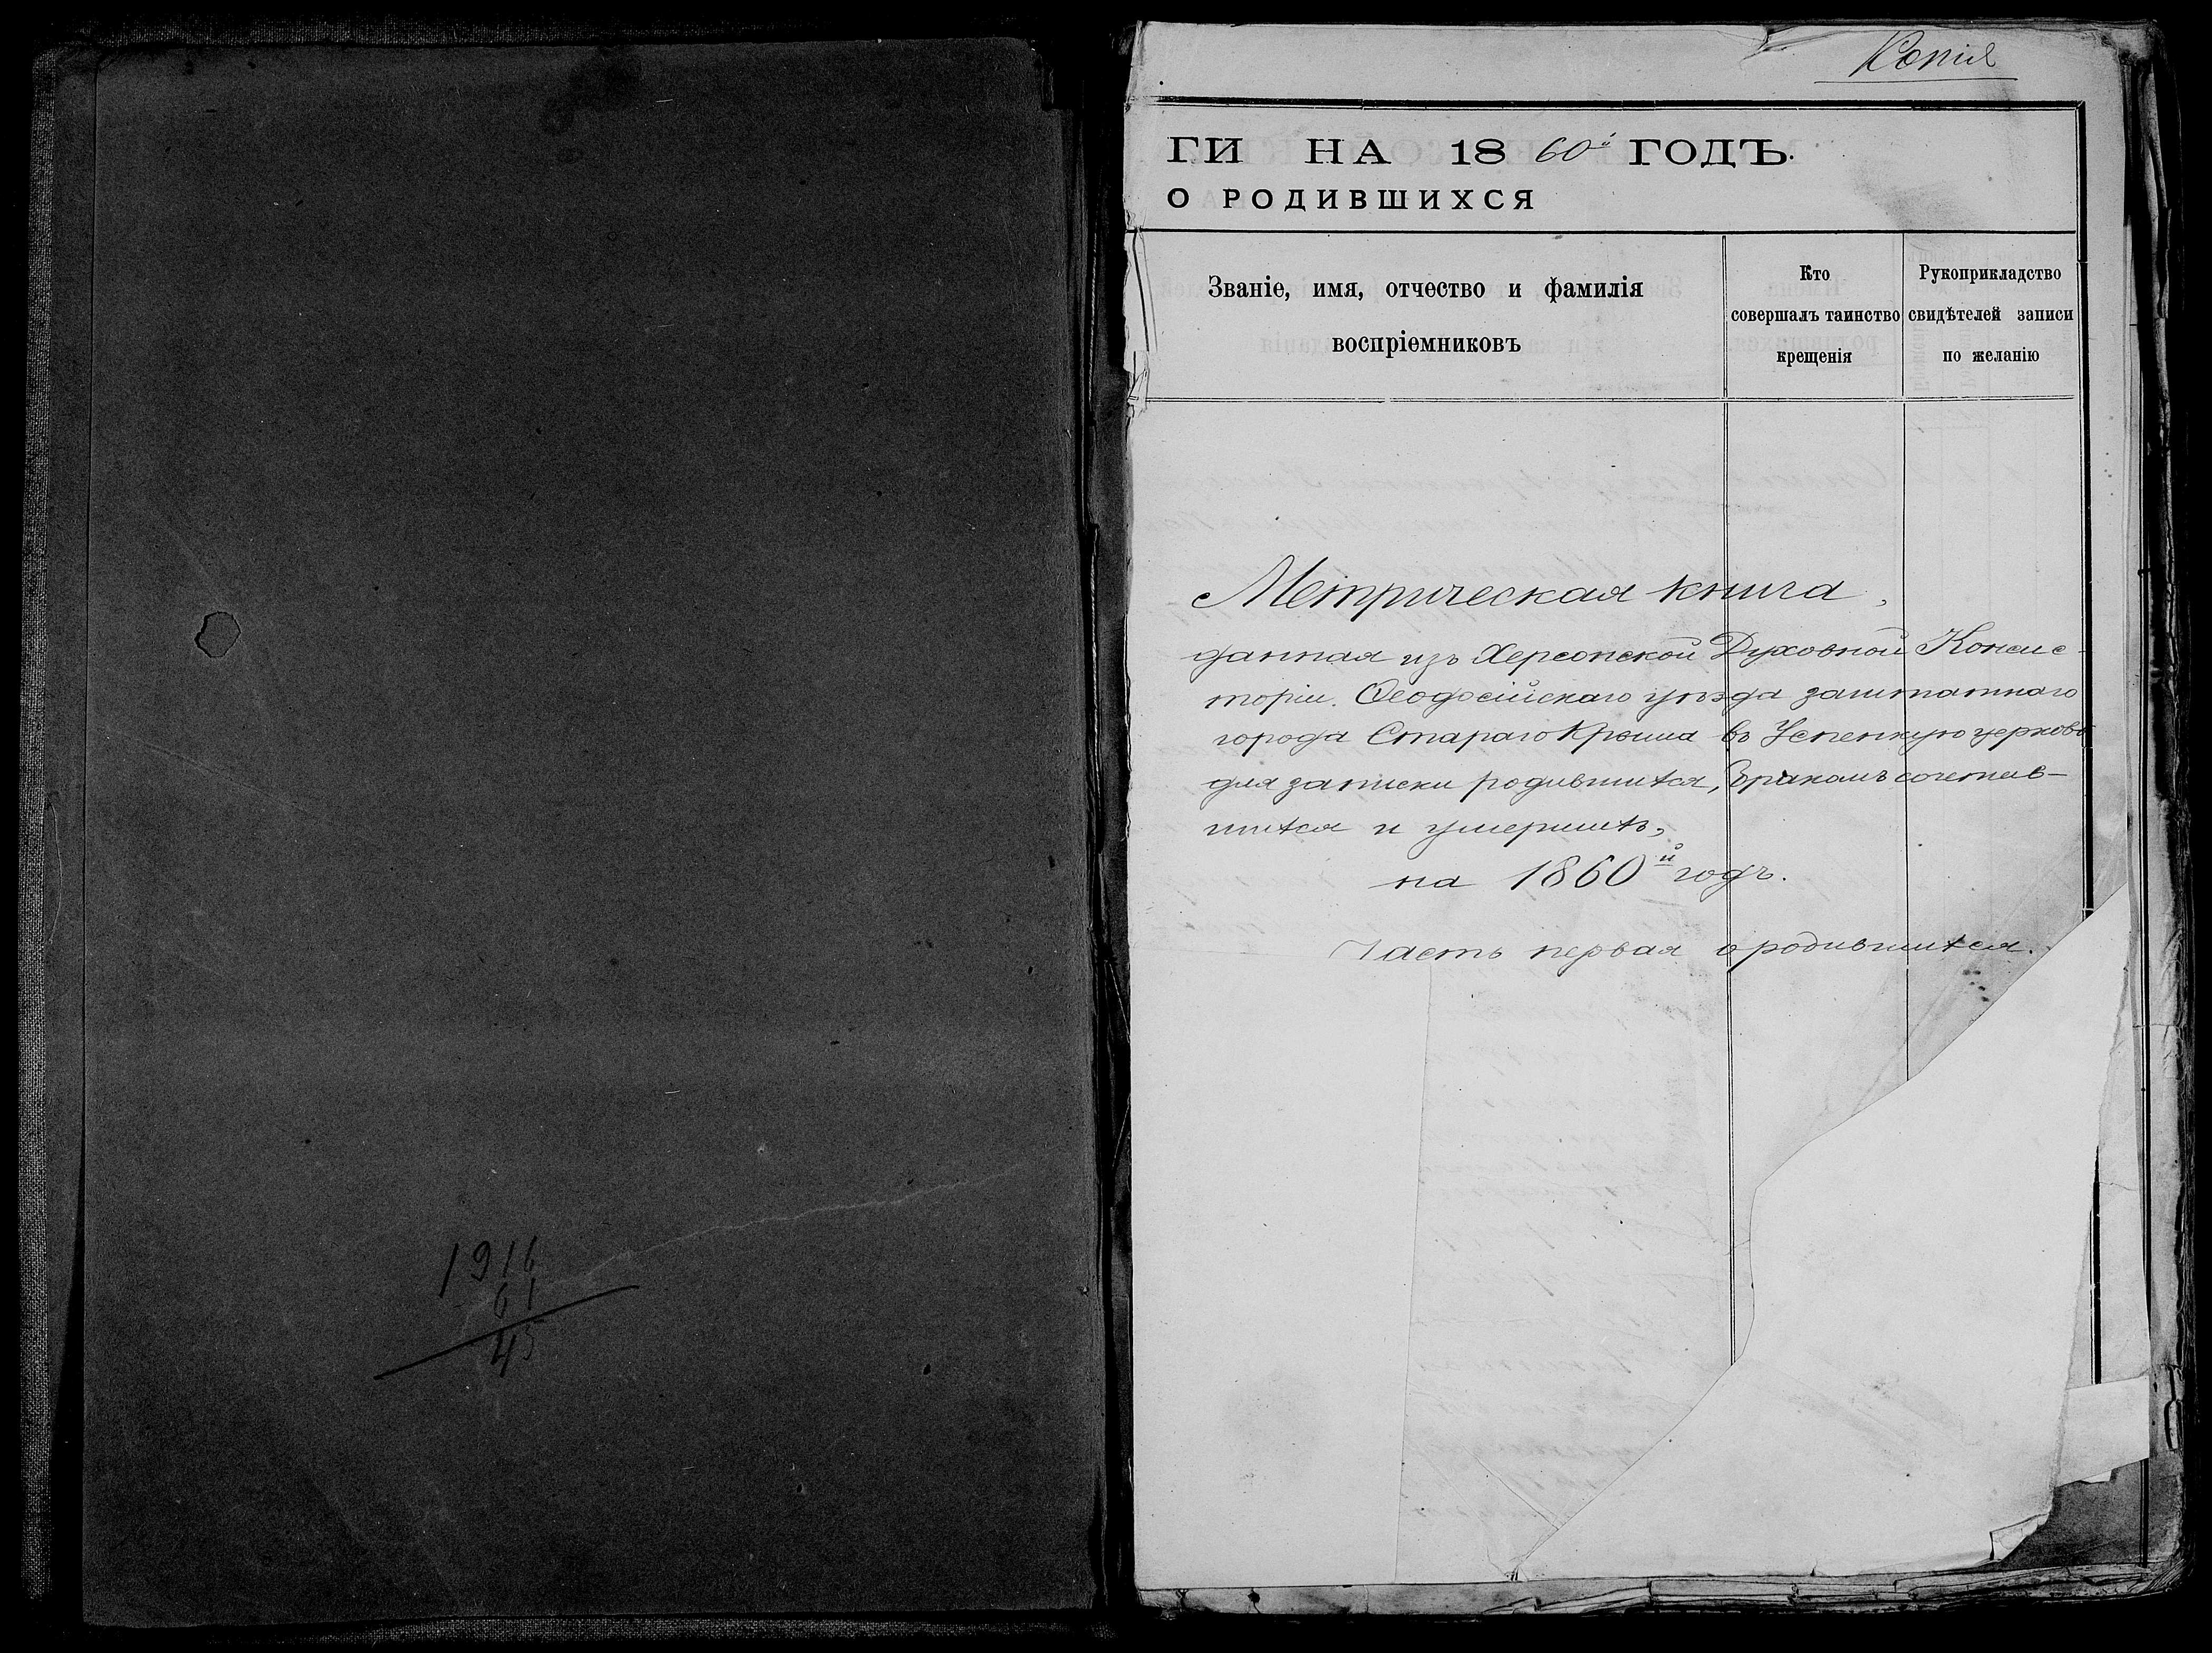 1916
61
45
Копія
ГИ НА 1860й ГОДЪ.
О РОДИВШИХСЯ
Званіе, имя, отчество и фамилія
воспріемниковъ
Кто
совершалъ таинство
крещенія
Рукоприкладство
свидѣтелей записи
по желанію
Метрическая книга,
данная изъ Херсонской Духовной Консис-
торіи. Ѳеодосійскаго уѣзда заштатнаго
города Стараго Крыма въ Успенскую церковь
для записки родившихся, бракомъ сочетав-
шихся и умершихъ,
на 1860й годъ.
Часть первая о родившихся.